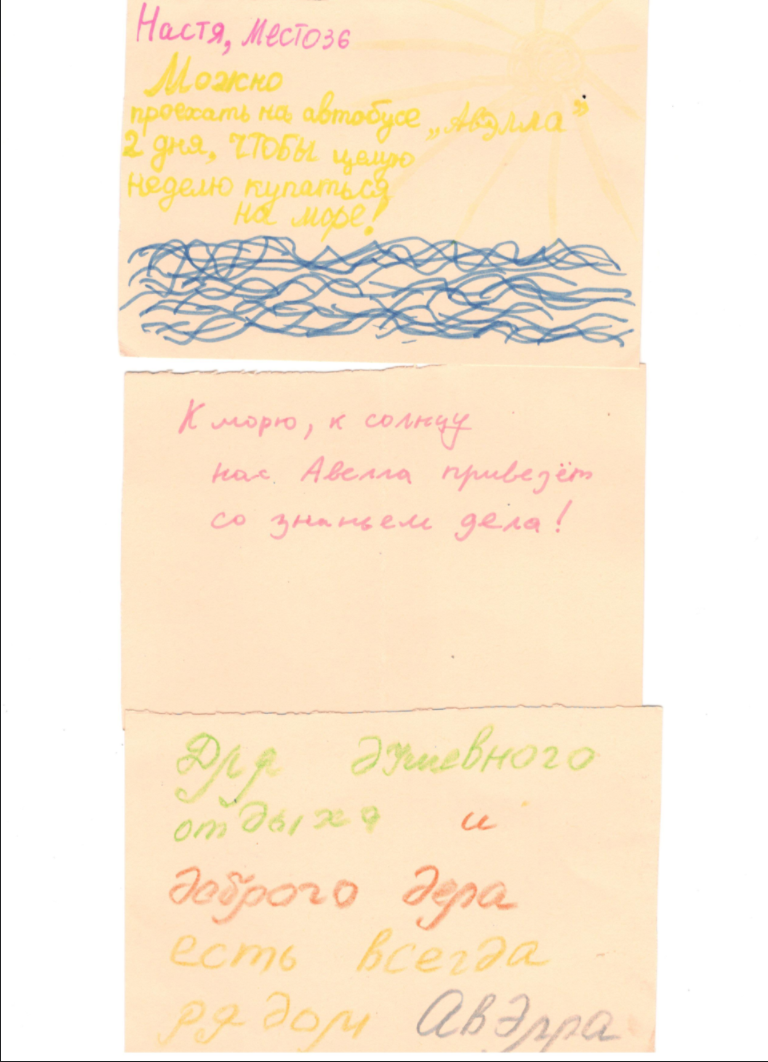 Настя, Место 36
Можно
проехать на автобусе „Авэлла”
2 дня, ЧТОБЫ целую
неделю купаться
на море!
К морю, к солнцу
нас Авелла привезёт
со знаньем дела!
Для душевного
отдыха и
доброго дела
есть всегда
рядом Авэлла